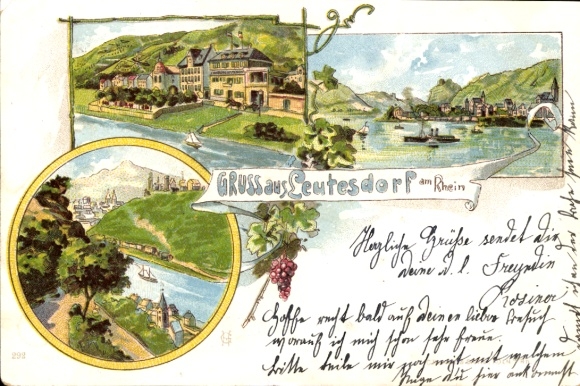 GRUSS aus Leutesdorf am Rhein
Herzliche Grüße sendet dir
deine d. l. Freundin
Rosina
Hoffe recht bald auf deinen lieben Besuch
worauf ich mich schon sehr freue.
bitte teile mir noch mit mit welchem
Zuge du hier ankommst
292